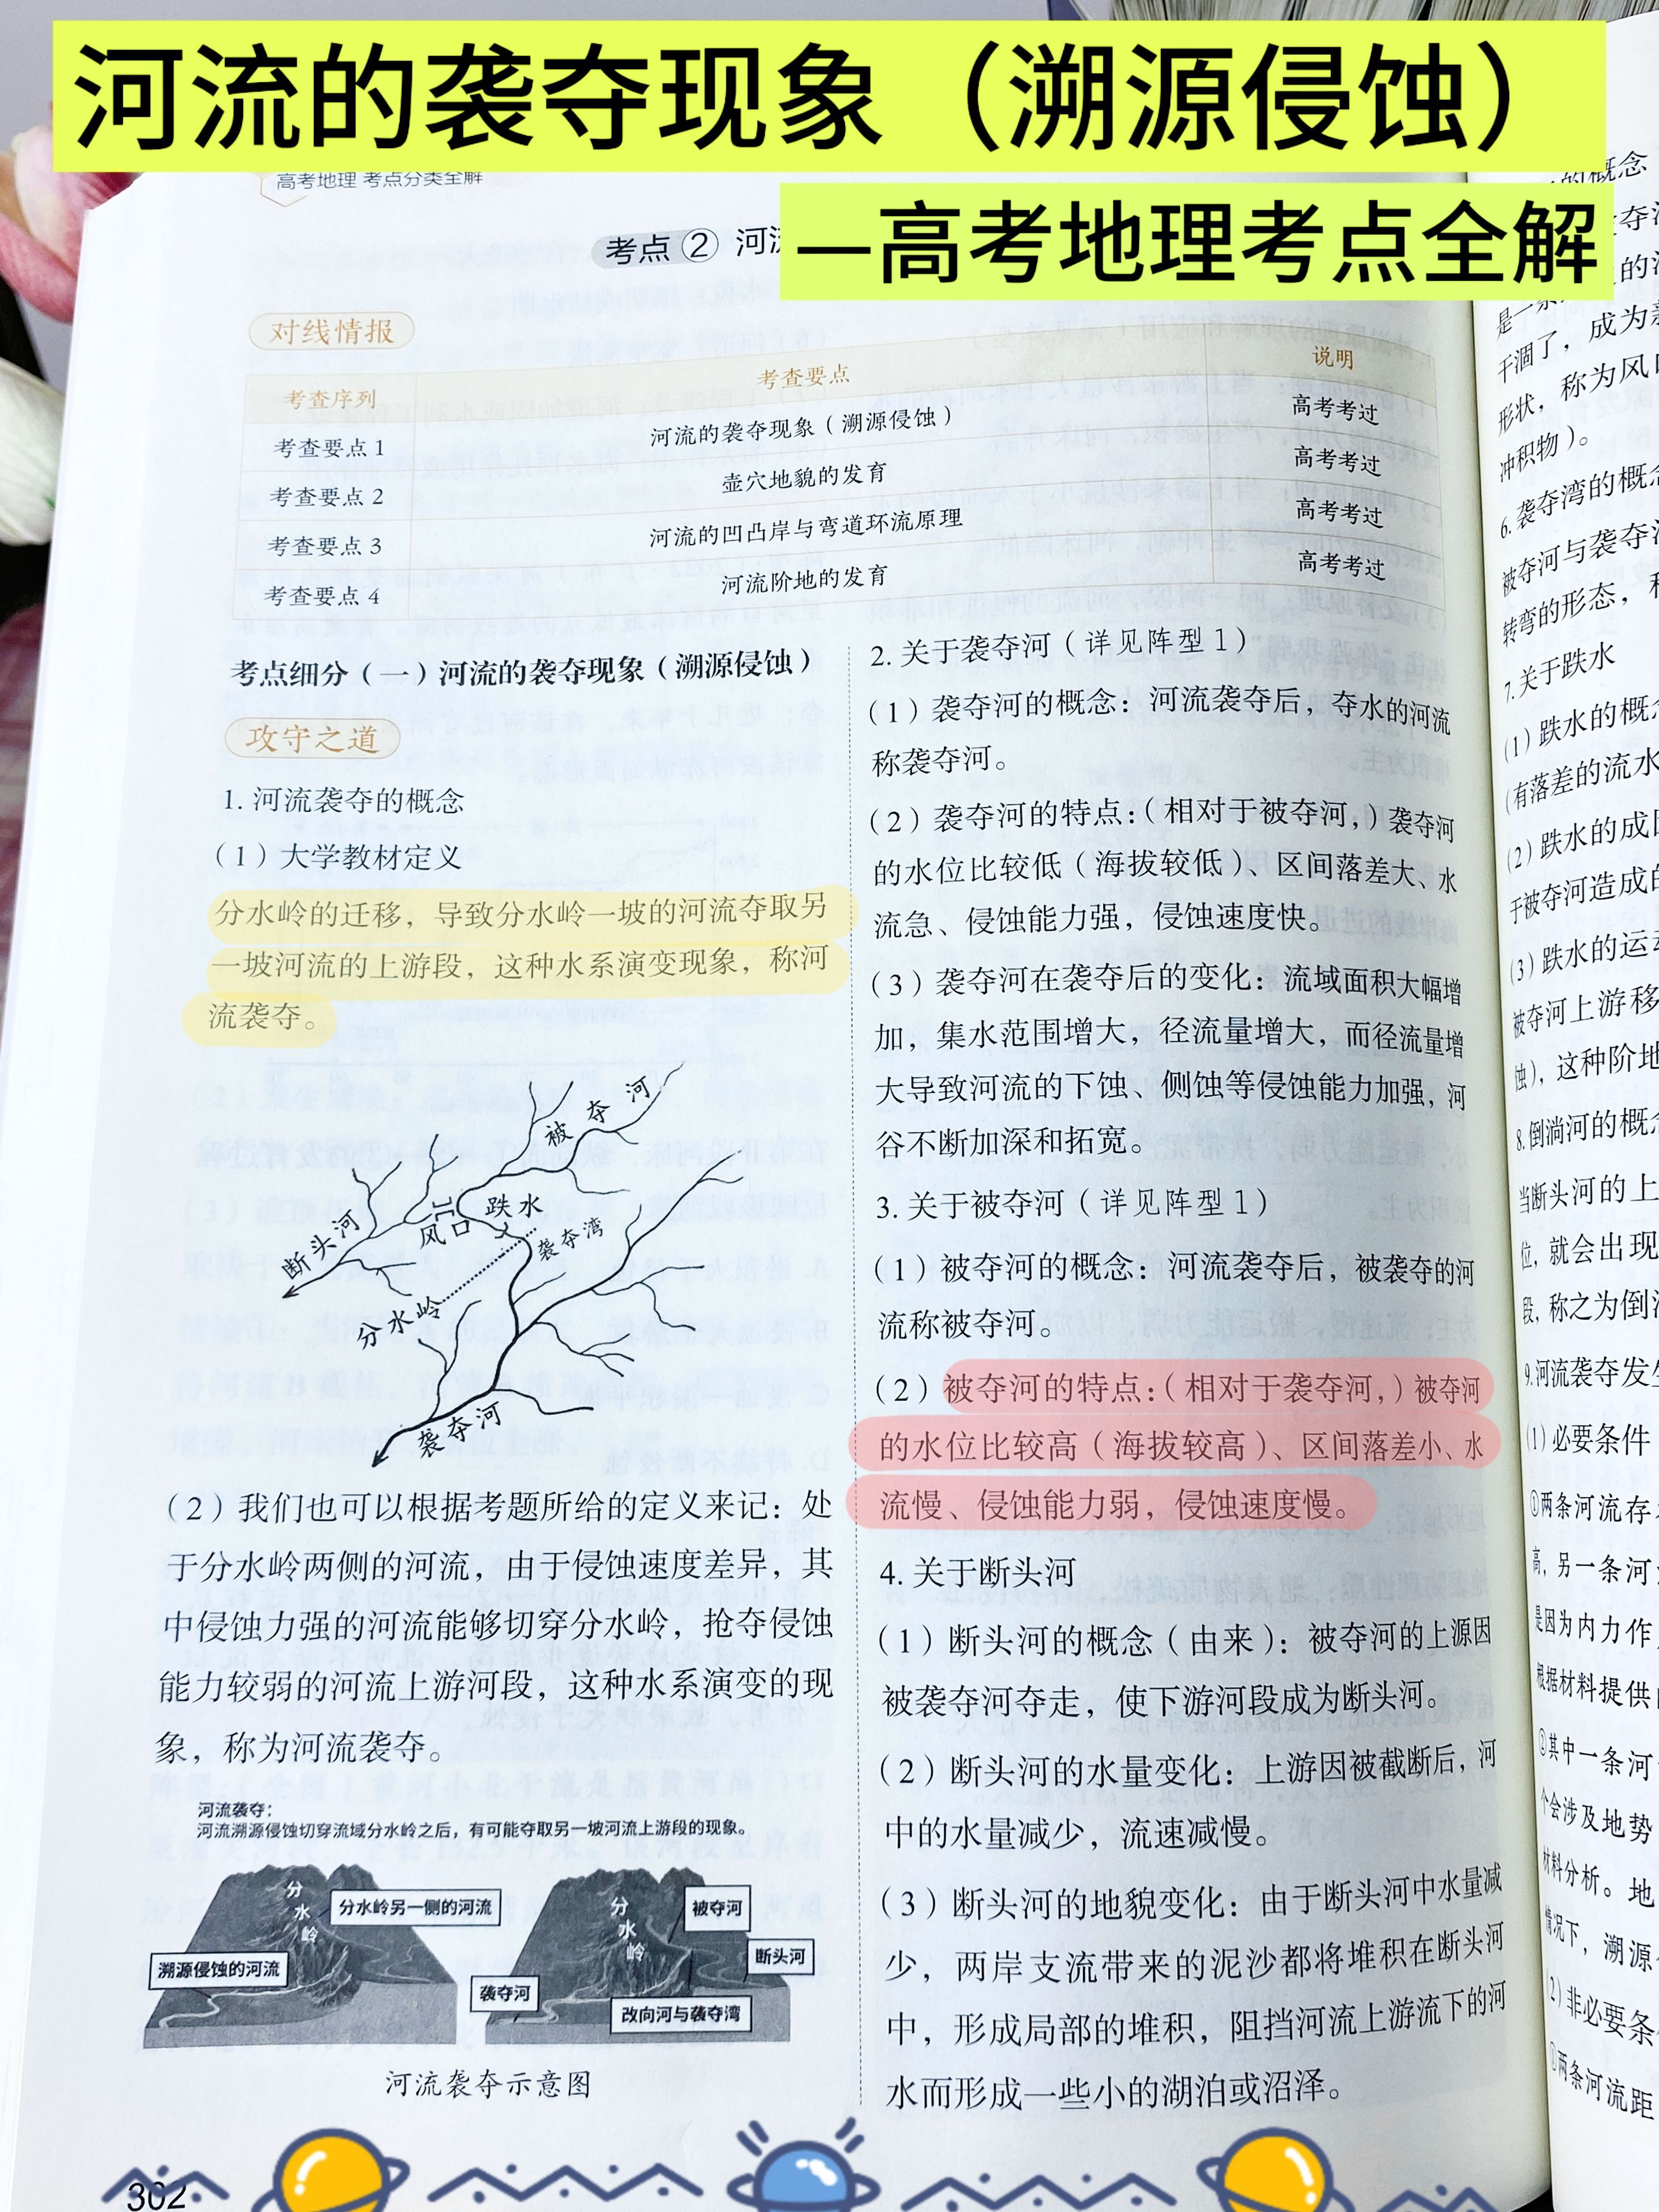 河流的袭夺现象（溯源侵蚀）
—高考地理考点全解
高考地理 考点分类全解
考点② 河
对线情报
考查序列 考查要点 说明
考查要点1 河流的袭夺现象（溯源侵蚀） 高考考过
考查要点2 壶穴地貌的发育 高考考过
考查要点3 河流的凹凸岸与弯道环流原理 高考考过
考查要点4 河流阶地的发育 高考考过
考点细分（一）河流的袭夺现象（溯源侵蚀）
攻守之道
1. 河流袭夺的概念
（1）大学教材定义
分水岭的迁移，导致分水岭一坡的河流夺取另
一坡河流的上游段，这种水系演变现象，称河
流袭夺。
被夺河
跌水
风口
袭夺湾
断头河
分水岭
袭夺河
（2）我们也可以根据考题所给的定义来记：处
于分水岭两侧的河流，由于侵蚀速度差异，其
中侵蚀力强的河流能够切穿分水岭，抢夺侵蚀
能力较弱的河流上游河段，这种水系演变的现
象，称为河流袭夺。
河流袭夺：
河流溯源侵蚀切穿流域分水岭之后，有可能夺取另一坡河流上游段的现象。
分水岭
分水岭另一侧的河流
溯源侵蚀的河流
分水岭
被夺河
断头河
袭夺河
改向河与袭夺湾
河流袭夺示意图
302
2. 关于袭夺河（详见阵型1）
（1）袭夺河的概念：河流袭夺后，夺水的河流
称袭夺河。
（2）袭夺河的特点：（相对于被夺河，）袭夺河
的水位比较低（海拔较低）、区间落差大、水
流急、侵蚀能力强，侵蚀速度快。
（3）袭夺河在袭夺后的变化：流域面积大幅增
加，集水范围增大，径流量增大，而径流量增
大导致河流的下蚀、侧蚀等侵蚀能力加强，河
谷不断加深和拓宽。
3. 关于被夺河（详见阵型1）
（1）被夺河的概念：河流袭夺后，被袭夺的河
流称被夺河。
（2）被夺河的特点：（相对于袭夺河，）被夺河
的水位比较高（海拔较高）、区间落差小、水
流慢、侵蚀能力弱，侵蚀速度慢。
4. 关于断头河
（1）断头河的概念（由来）：被夺河的上源因
被袭夺河夺走，使下游河段成为断头河。
（2）断头河的水量变化：上游因被截断后，河
中的水量减少，流速减慢。
（3）断头河的地貌变化：由于断头河中水量减
少，两岸支流带来的泥沙都将堆积在断头河
中，形成局部的堆积，阻挡河流上游流下的河
水而形成一些小的湖泊或沼泽。
的概念
是一条
干涸了，成为
形状，称为风
冲积物）。
6. 袭夺湾的概
被夺河与袭夺
转弯的形态，
7. 关于跌水
（1）跌水的概
（有落差的流水
（2）跌水的成
于被夺河造成的
（3）跌水的运
被夺河上游移
蚀），这种阶
8. 倒淌河的概
当断头河的上
位，就会出现
段，称之为倒
9. 河流袭夺发
（1）必要条件
①两条河流存
高，另一条河
是因为内力作
根据材料提供
②其中一条河
个会涉及地势
材料分析。地
情况下，溯源
（2）非必要条
①两条河流距